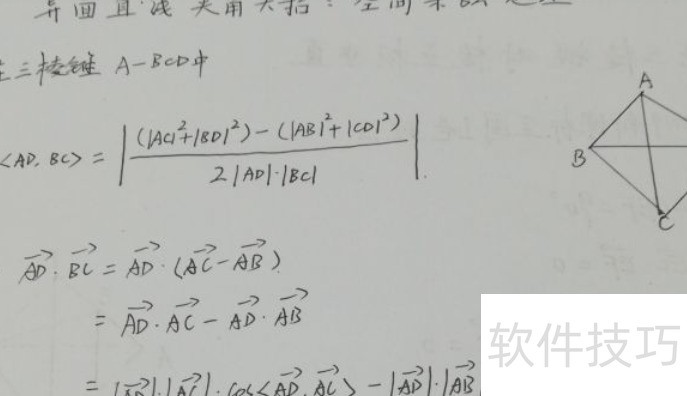 异面直线夹角大招:空间余弦定理
在三棱锥 A-BCD中
<AD, BC> = | (|AC|²+|BD|²) - (|AB|²+|CD|²) / 2|AD|·|BC| |.
A
B
C
AD · BC = AD · (AC - AB)
= AD · AC - AD · AB
= |AD|·|AC|·cos<AD, AC> - |AD|·|AB
软件技巧